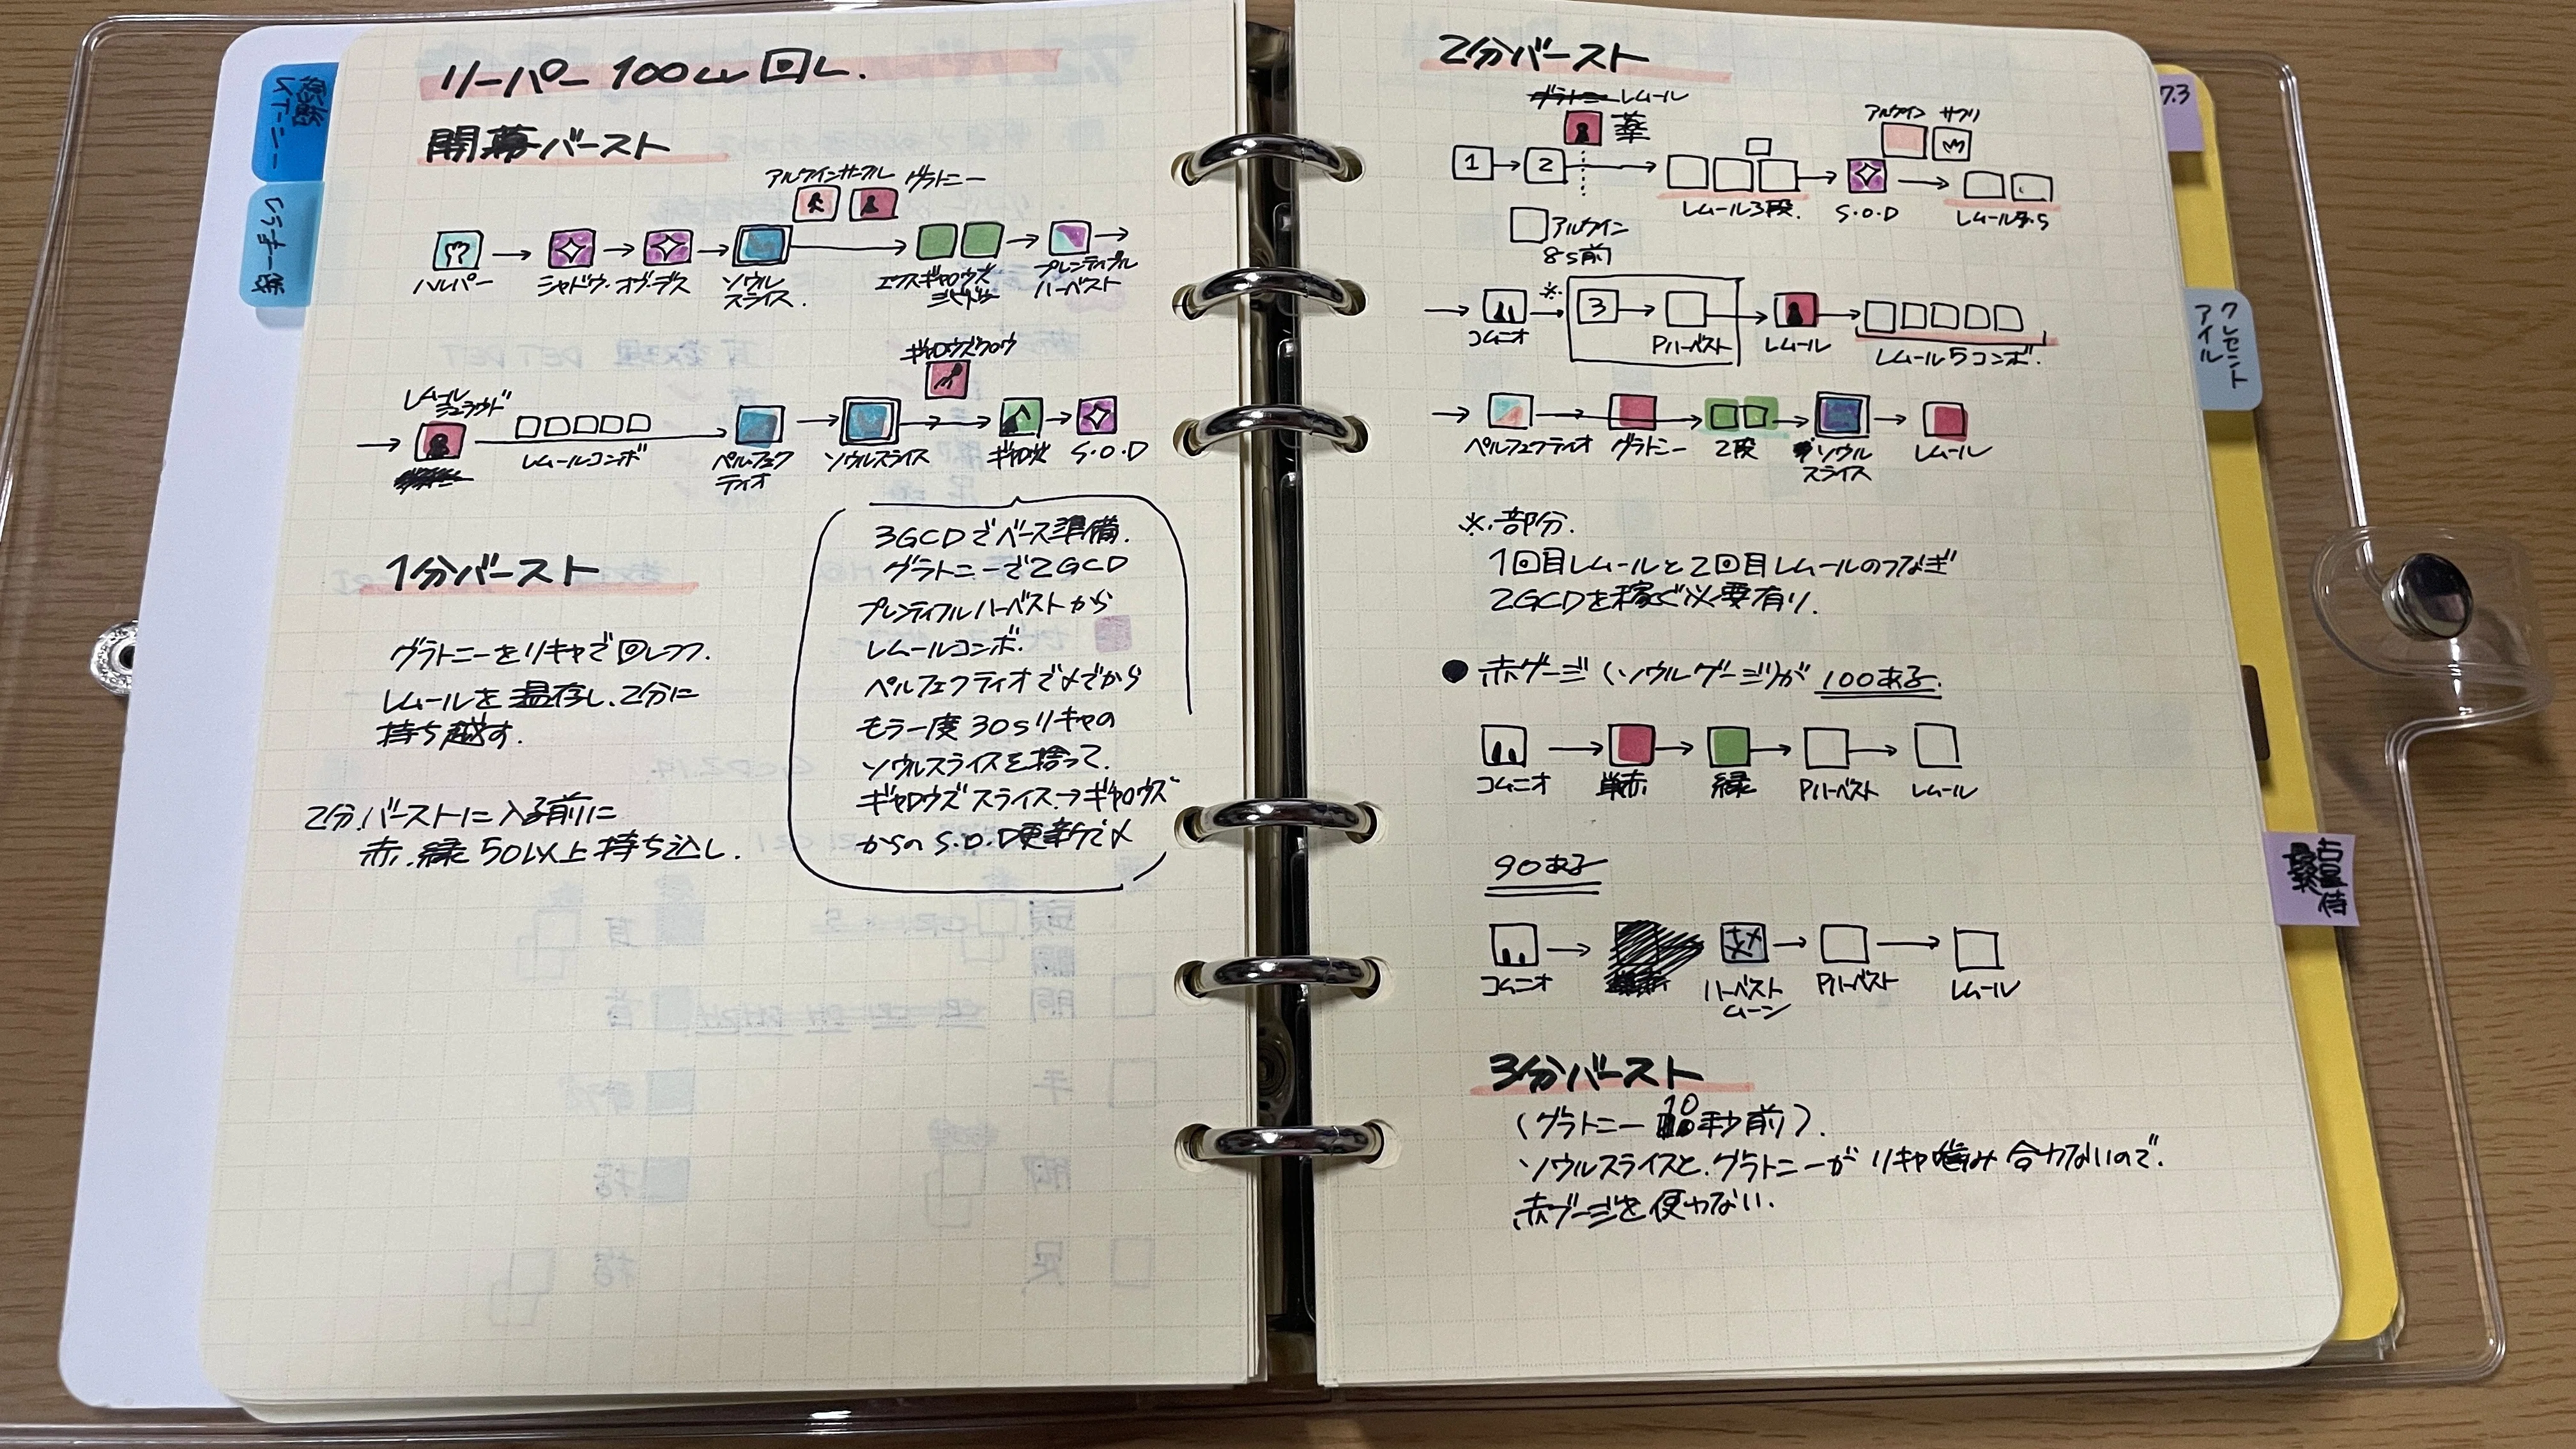 リーパー 100Lv 回し.
開幕バースト
アルケインサークル グラトニー
ハルパー
シャドウ・オブ・デス
ソウル
スライス.
エクスギャロウズ
プレンティフル
ハーベスト
ギャロウズクロウ
レムール
シュラウド
レムールコンボ
ペルフェク
ティオ
ソウルスライス
ギャロウズ
S.O.D
3GCDでベース準備.
グラトニーで2GCD
プレンティフルハーベストから
レムールコンボ.
ペルフェクティオで〆てから
もう一度 30sリキャの
ソウルスライスを拾って.
ギャロウズスライス→ギャロウズ
からの S.O.D更新で〆
1分バースト
グラトニーをリキャで回しつつ.
レムールを温存し.2分に
持ち越す.
2分.バーストに入る前に
赤.緑 50以上 持ち込し.
2分バースト
グラトニー レムール
薬
アルケイン サクリ
1
2
レムール3段.
S.O.D
アルケイン
8s前
コムニオ
※
3
Pハーベスト
レムール
レムール5コンボ.
ペルフェクティオ
グラトニー
2段
ソウル
スライス
レムール
※.部分.
1回目レムールと2回目レムールのつなぎ
2GCDを稼ぐ必要有り.
● 赤ゲージ(ソウルゲージ)が 100ある.
コムニオ
単赤.
緑
Pハーベスト
レムール
90ある
コムニオ
ハーベスト
ムーン
Pハーベスト
レムール
3分バースト
(グラトニー 10秒前).
ソウルスライスと.グラトニーが リキャ噛み合わないので.
赤ゲージを使わない.
7.3
クレセント
アイル
占星
侍